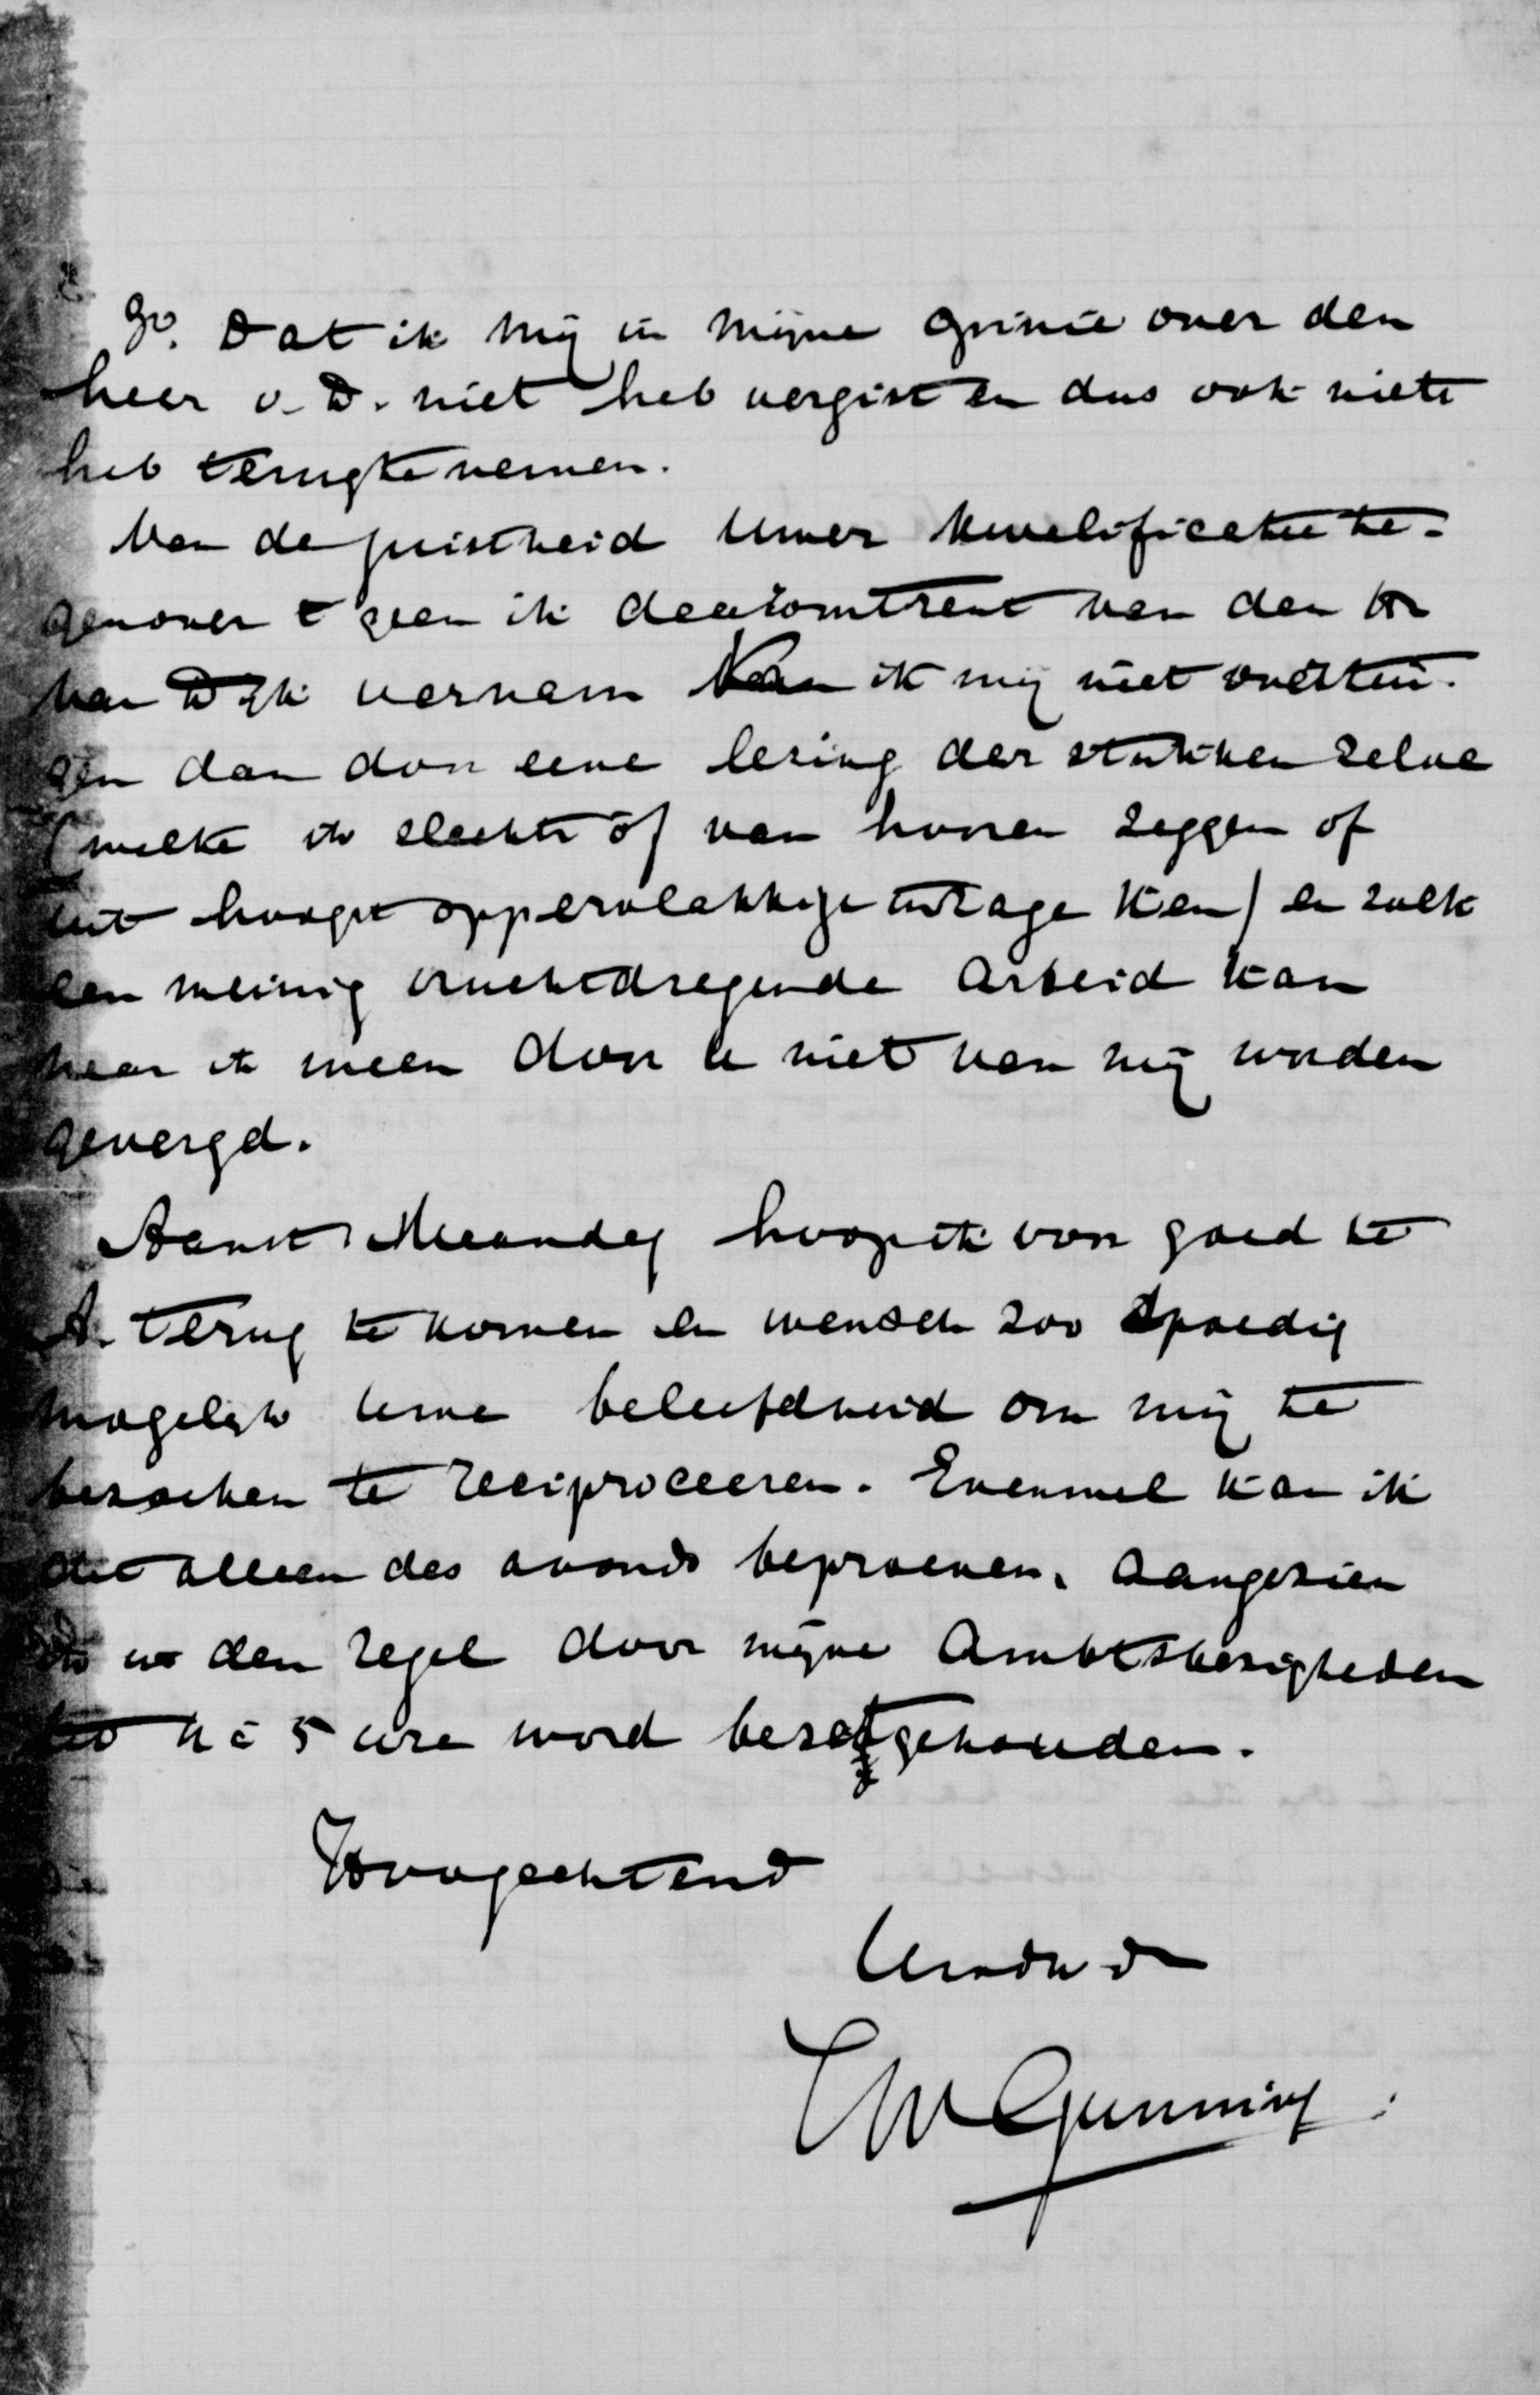 3º. Dat ik mij in mijne opinie over den
heer v. D. niet heb vergist en dus ook niets
heb terugtenemen.
Van de juistheid Uwer kwalificatie te-
genover 't geen ik daaromtrent van den Hr
van Dijk vernam kan ik mij niet overtui-
gen dan door eene lezing der stukken zelve
(welke ik slechts òf van hooren zeggen of
uit hoogst oppervlakkige inzage ken) en zulk
een weinig vruchtdragende arbeid kan
naar ik meen door U niet van mij worden
gevergd.
Aanst. Maandag hoop ik voor goed te
A. terug te komen en wensch zoo spoedig
mogelijk Uwe beleefdheid om mij te
bezoeken te reciproceeren. Evenwel kan ik
dit alleen des avonds beproeven, aangezien
ik in den regel door mijne Ambtsbezigheden
tot 4 à 5 ure word bezet gehouden.
Hoogachtend
UwEdw dr
JW Gunning